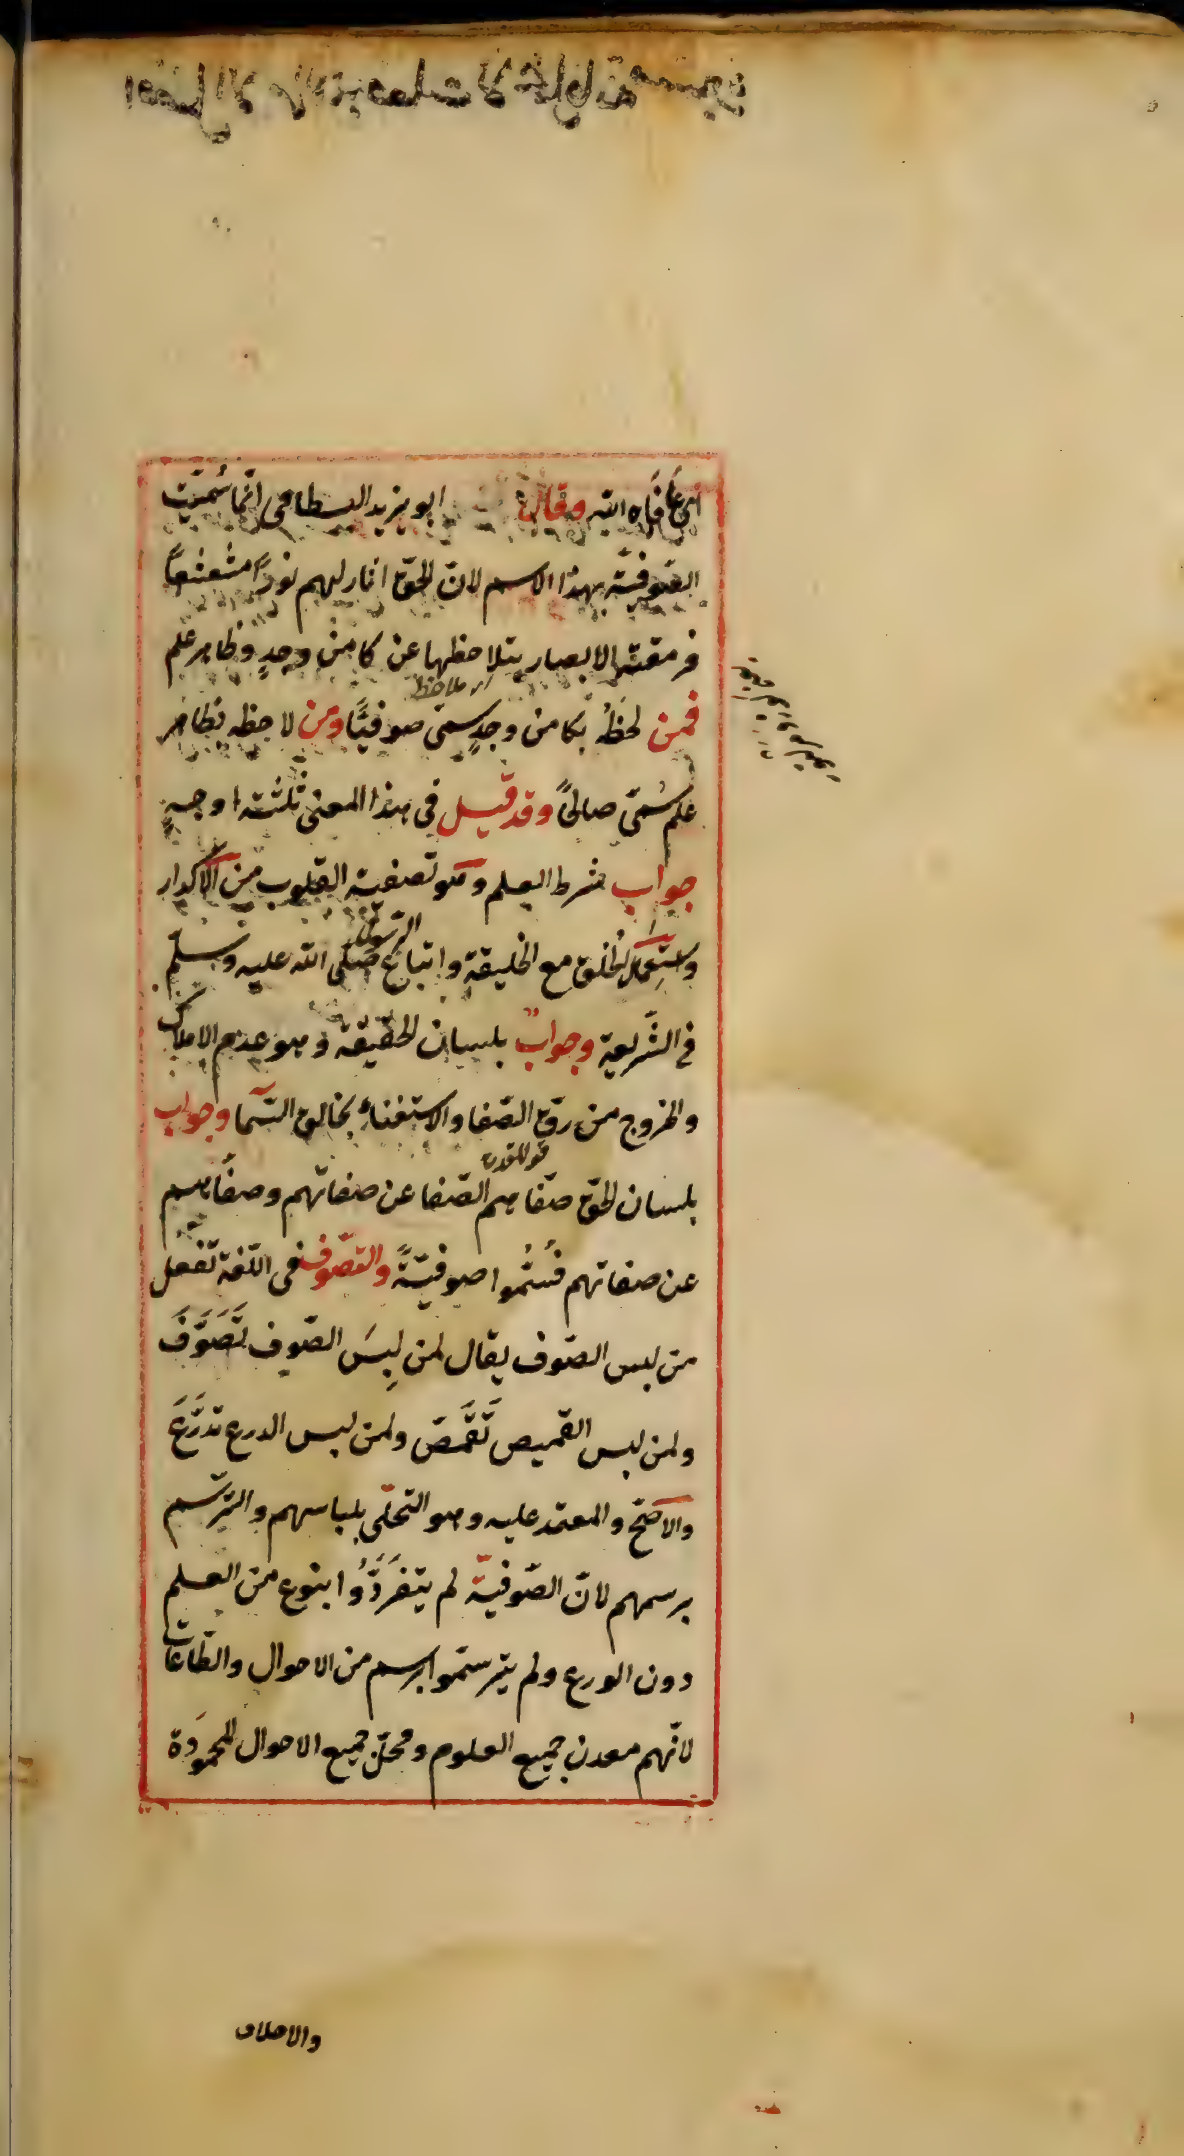 اى عَافَاه الله وقال ابو يزيد البسطامى انّما سُمّيت
الصّوفيّة بهذا الاسم لانّ الحقّ انار لهم نورًا مشعشعًا
فرمقته الابصار بتلاحظها عن كامن وجدٍ وظاهر علم
فمن لحَظَهُ بكامن وجدٍ سمّى صوفيًّا ومن لاحظه بظاهر
علم سُمّى صالحًا وقد قيل فى هذا المعنى ثلثة اوجهٍ
جواب بشرط العلم وهو تصفية القلوب من الاكدار
واستعمال الخلق مع الخليقة واتباع الرّسول صلّى الله عليه وسلّم
فى الشّريعة وجوابٌ بلسان الحقيقة وهو عدم الاملاك
والخروج من رقّ الصّفا والاستغناء بخالق السّما وجواب
بلسان الحقّ صفّاهم الصّفا عن صفاتهم وصفّاهم
عن صفاتهم فسُمُّوا صوفيّةً والتصّوف فى اللّغة تفعّل
من لبس الصّوف يقال لمن لبِسَ الصّوف تَصَوَّفَ
ولمن لبس القميص تَقَمَّصَ ولمن لبس الدرع تدَرَّعَ
والاصّح والمعتمد عليه وهو التحلّى بلباسهم والتّرسّم
برسمهم لانّ الصّوفيّة لم يتفَرَّدُوا بنوع من العلم
دون الورع ولم يترسّموا برسم من الاحوال والطّاعات
لانّهم معدن جميع العلوم ومحلّ جميع الاحوال المحمودة
والاخلاق